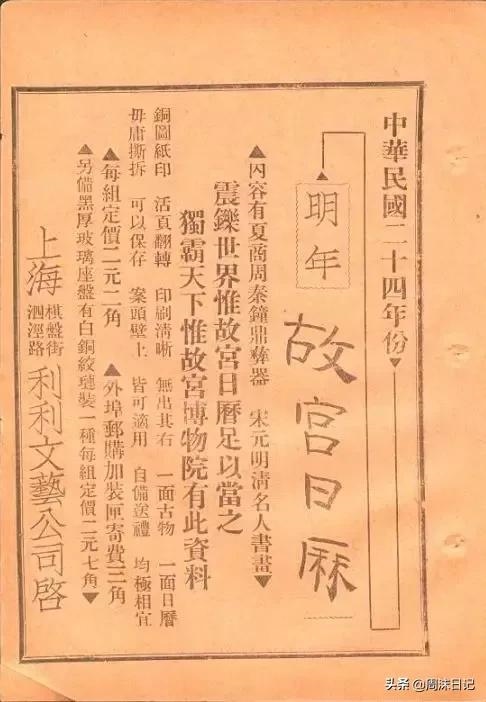 中華民國二十四年份▼
▲明年
故宮日厤
▲內容有夏商周秦鐘鼎彝器 宋元明清名人書畫▼
震鑠世界惟故宮日曆足以當之
獨霸天下惟故宮博物院有此資料
銅圖紙印 活頁翻轉 印刷清晰 無出其右 一面古物 一面日曆
毋庸撕拆 可以保存 案頭壁上 皆可適用 自備送禮 均極相宜
▲每組定價二元二角 ▲外埠郵購加裝匣寄費三角
▲另備黑厚玻璃座盤有白銅絞璉裝一種每組定價二元七角▼
上海棋盤街泗涇路利利文藝公司啓
头条 @周沫日记